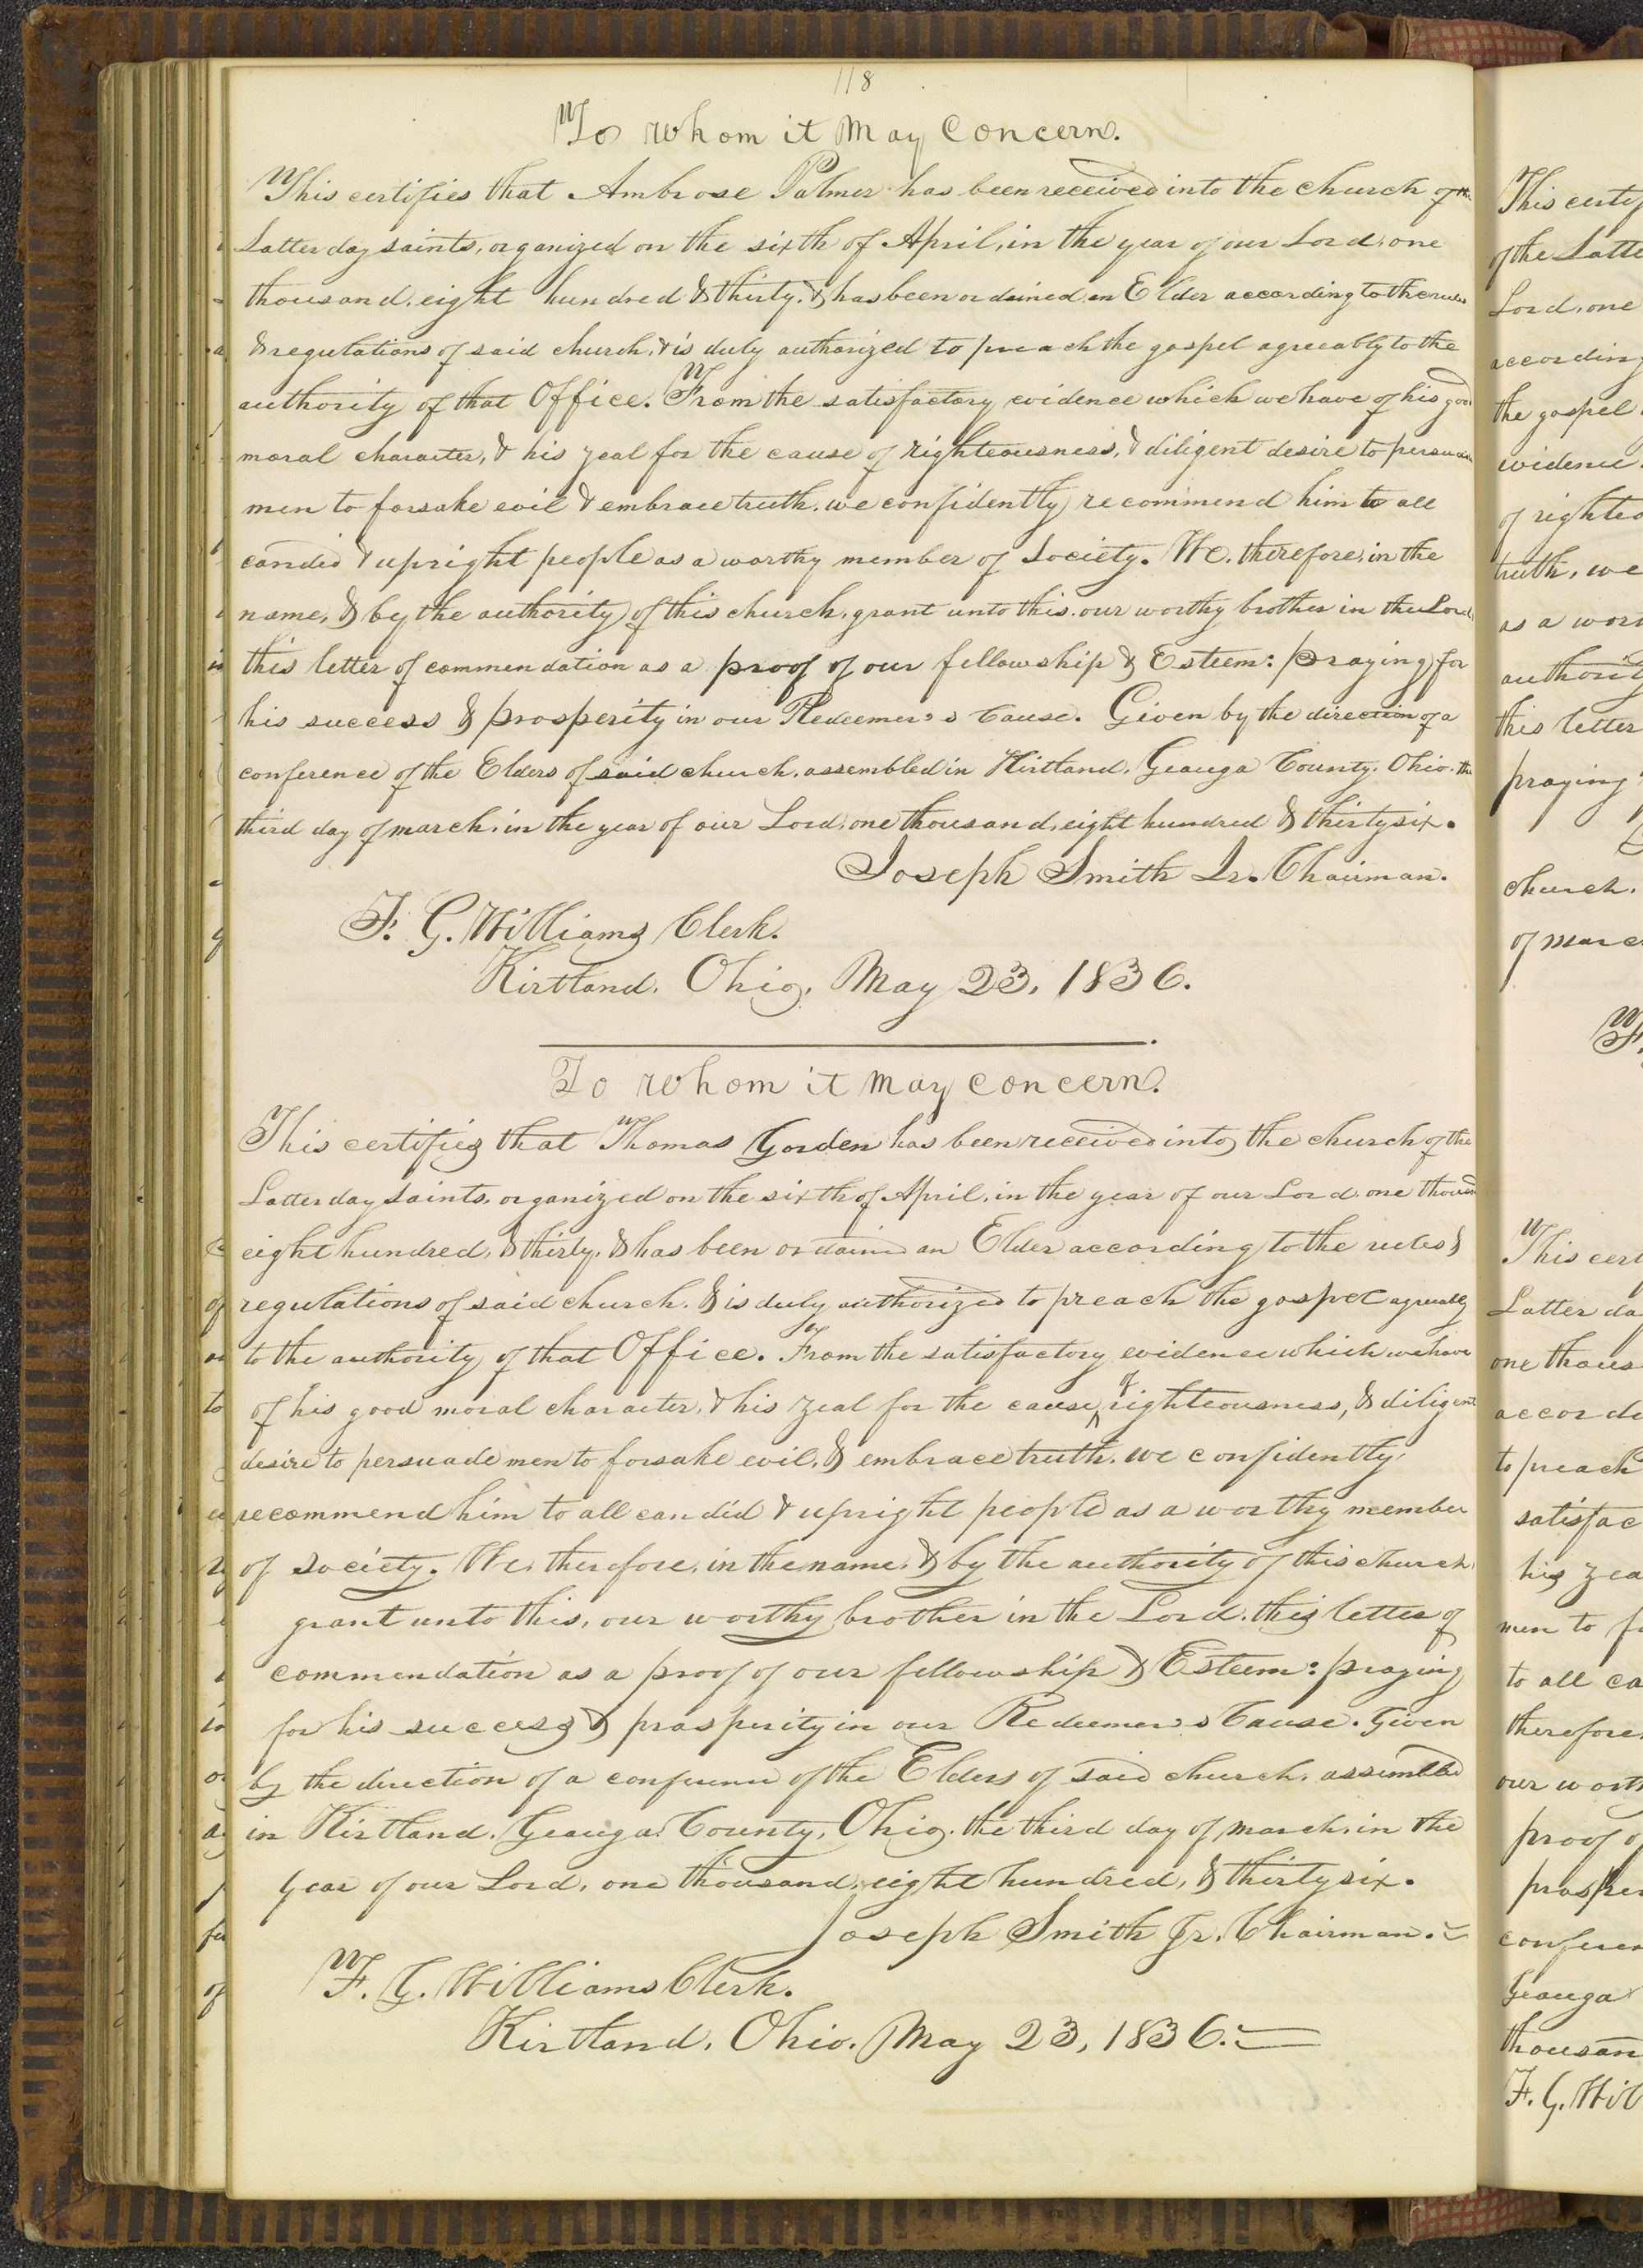 118
To whom it May Concern.
This certifies that Ambrose Palmer has been received into the church of the
Latter day saints, organized on the sixth of April, in the year of our Lord, one
thousand, eight hundred & thirty, & has been ordained an Elder according to the rules
& regulations of said church, & is duly authorized to preach the gospel agreeably to the
authority of that Office. From the satisfactory evidence which we have of his good
moral character, & his zeal for the cause of righteousness, & diligent desire to persuade
men to forsake evil & embrace truth, we confidently recommend him to all
candid & upright people as a worthy member of Society. We, therefore, in the
name, & by the authority of this church, grant unto this, our worthy brother in the Lord,
this letter of commendation as a proof of our fellowship & Esteem: praying for
his success & prosperity in our Redeemer's Cause. Given by the direction of a
conference of the Elders of said church, assembled in Kirtland, Geauga County, Ohio, the
third day of march, in the year of our Lord, one thousand, eight hundred & thirty six.
Joseph Smith Jr. Chairman.
F. G. Williams Clerk.
Kirtland, Ohio, May 23, 1836.
To whom it May Concern.
This certifies that Thomas Gorden has been received into the church of the
Latter day Saints, organized on the sixth of April, in the year of our Lord, one thousand
eight hundred, & thirty, & has been ordained an Elder according to the rules &
regulations of said church, & is duly authorized to preach the gospel agreeably
to the authority of that Office. From the satisfactory evidence which we have
of his good moral character, & his zeal for the cause of righteousness, & diligent
desire to persuade men to forsake evil, & embrace truth, we confidently
recommend him to all candid & upright people as a worthy member
of Society. We, therefore, in the name, & by the authority of this church,
grant unto this, our worthy brother in the Lord, this letter of
commendation as a proof of our fellowship & Esteem: praying
for his success & prosperity in our Redeemer's Cause. Given
by the direction of a conference of the Elders of said church, assembled
in Kirtland, Geauga County, Ohio, the third day of march, in the
year of our Lord, one thousand, eight hundred, & thirty six.
Joseph Smith Jr. Chairman.
F. G. Williams Clerk.
Kirtland, Ohio. May 23, 1836.
This certif
of the Latte
Lord, one
according
the gospel
evidence
of righteo
truth, we
as a wort
authorit
this letter
praying
church,
of marc
This cert
Latter da
one thous
accordi
to preach
satisfac
his zea
men to f
to all ca
therefore,
our worth
proof o
prosper
conferen
Geauga
thousan
F. G. Wil